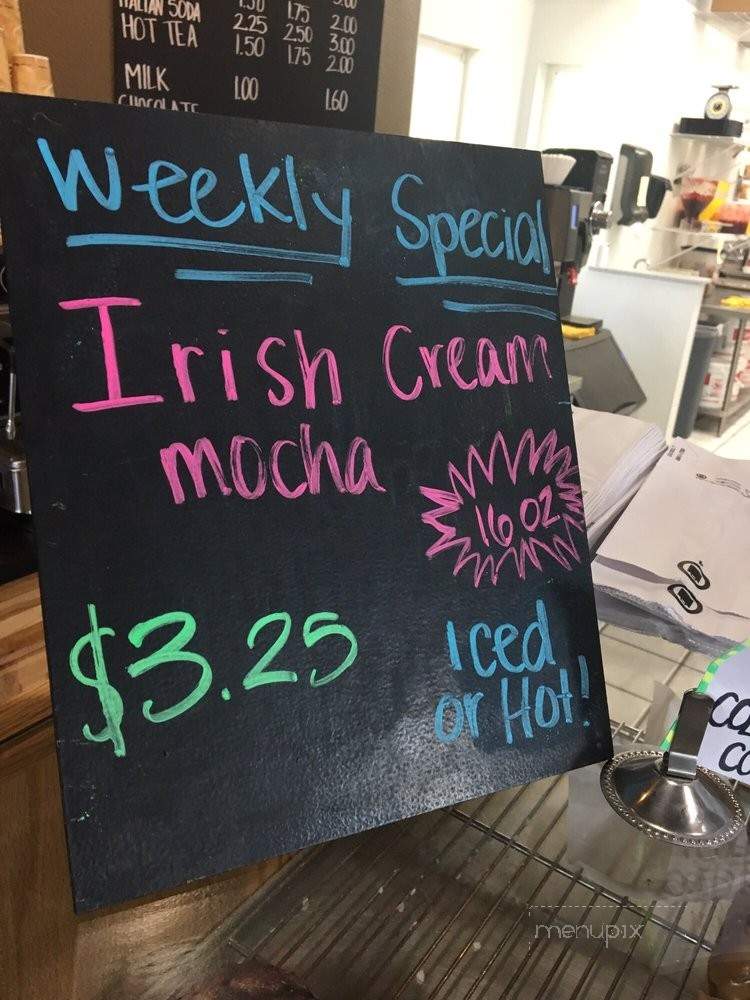 ITALIAN SODA 1.50 1.75 2.00
HOT TEA 2.25 2.50 3.00
1.50 1.75 2.00
MILK 1.00
CHOCOLATE 1.60
Weekly Special
Irish Cream
mocha
16 OZ
$3.25
Iced
or Hot!
menupix